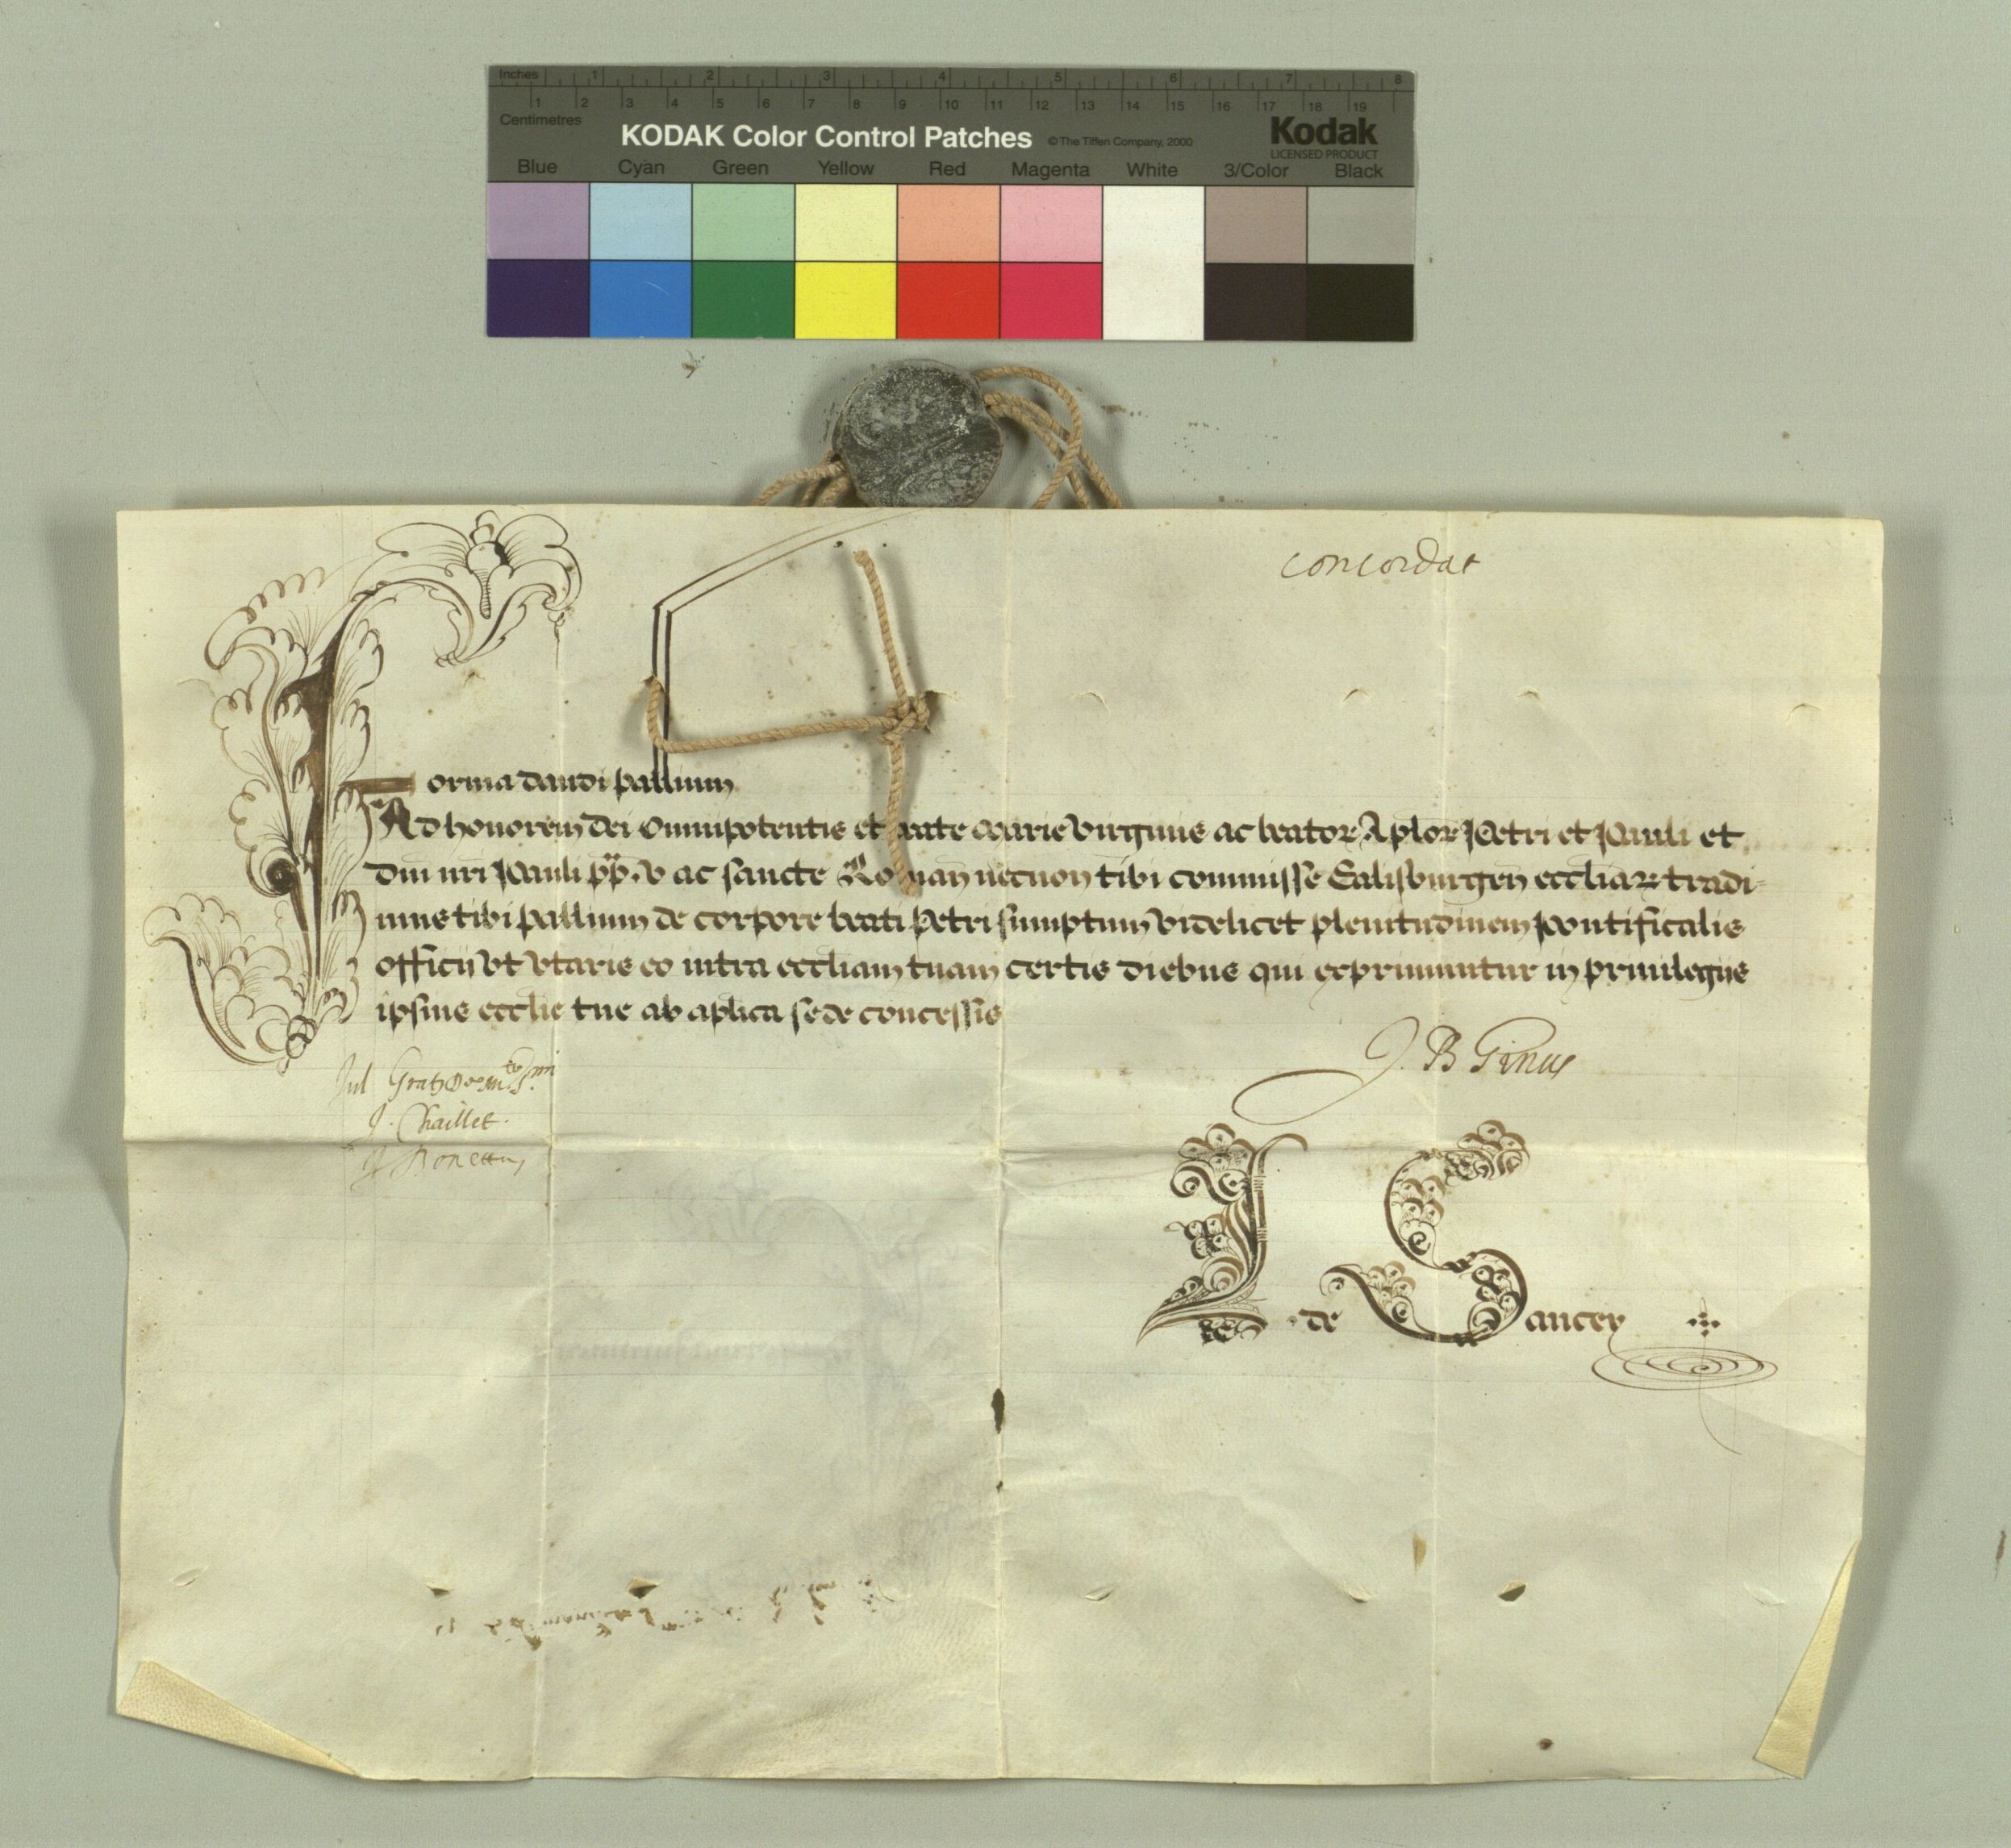 Inches 1 2 3 4 5 6 7 8
1 2 3 4 5 6 7 8 9 10 11 12 13 14 15 16 17 18 19
Centimetres
KODAK Color Control Patches © The Tiffen Company, 2000 Kodak
LICENSED PRODUCT
Blue Cyan Green Yellow Red Magenta White 3/Color Black
concordat
Forma dandi pallium
Ad honorem dei omnipotentis et beate marie virginis ac beator Aplor Petri et Pauli et
dni nri Pauli pp v ac sancte Roman necnon tibi commisse Salisburgen eccliar tradi-
mus tibi pallium de corpore beati Petri sumptum videlicet plenitudinem pontificalis
officij vt vtaris eo intra eccliam tuam certis diebus qui exprimuntur in priuilegijs
ipsius ecclie tue ab aplica sede concessis
J. B Ginus
Jul
J. Chaillet.
J Bonettus
I. de Sancey